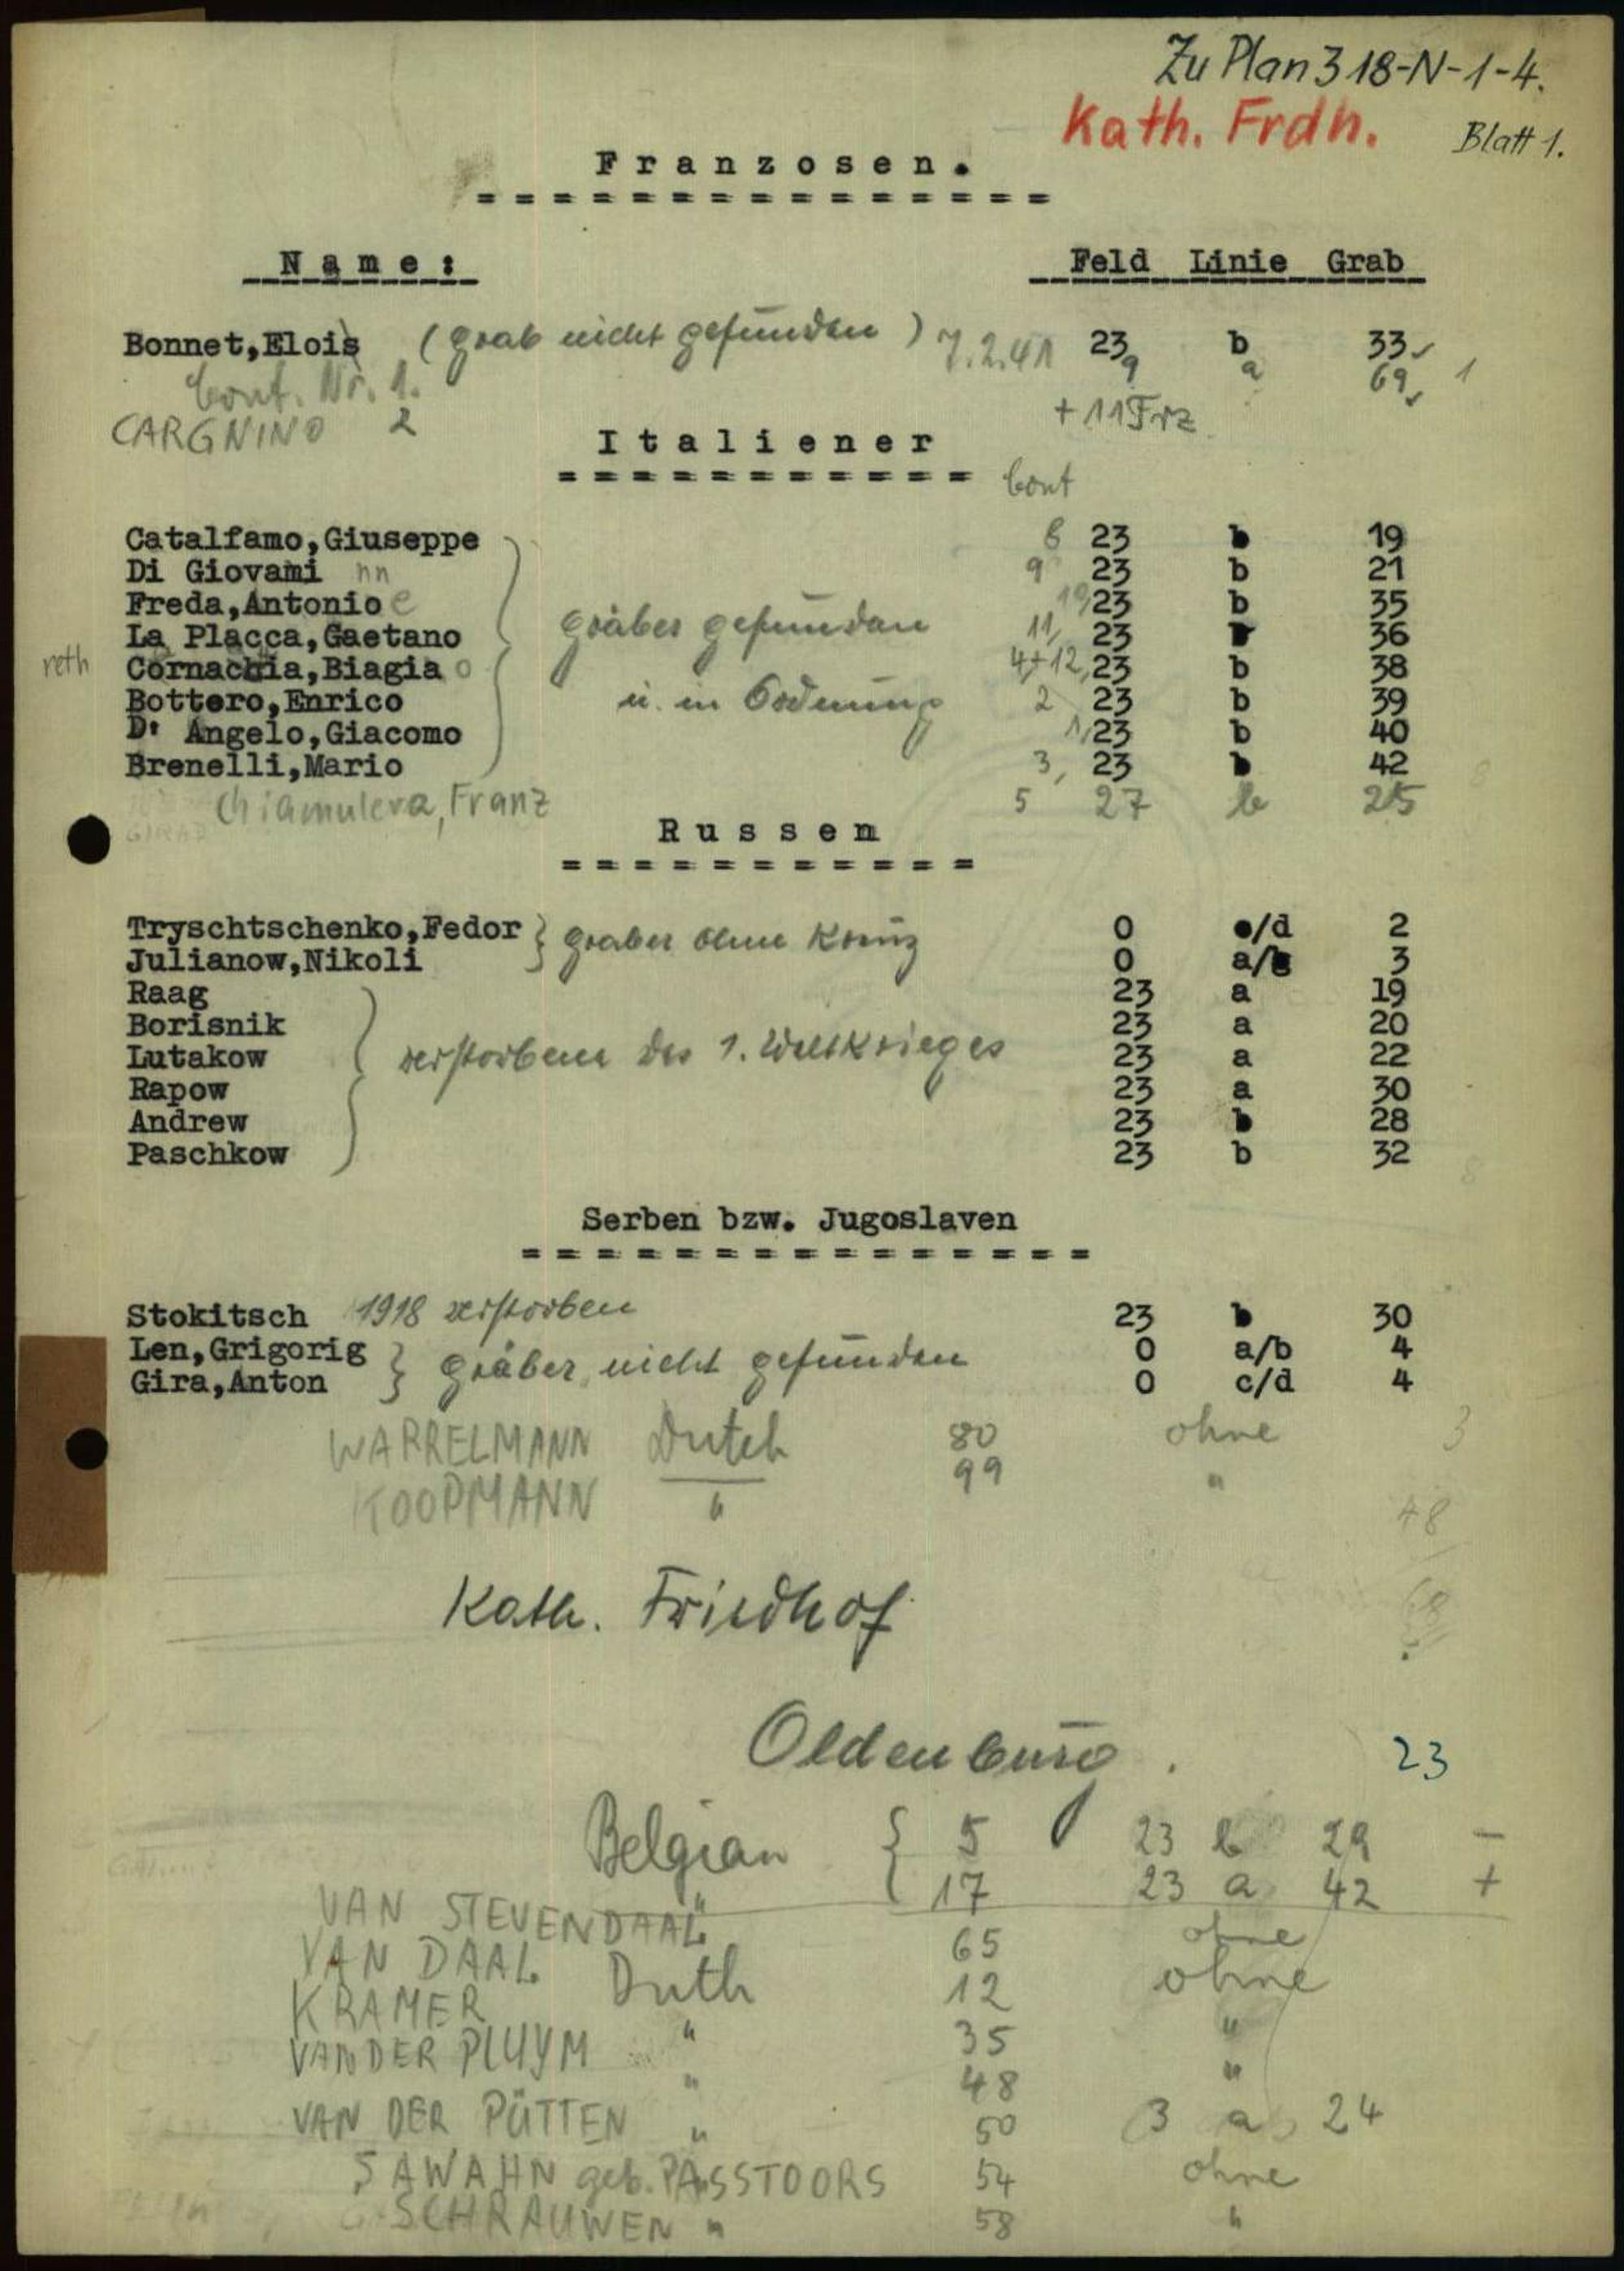 Zu Plan 318-N-1-4.
Kath. Frdh. Blatt 1.
Franzosen.
Name: Feld Linie Grab
Bonnet,Elois (Grab nicht gefunden) 7.2.41 23 b 33
Cont. Nr. 1. 9 a 69 1
CARGNINO 2 + 11 Frz
Italiener
Cont
Catalfamo,Giuseppe 8 23 b 19
Di Giovami nn 9 23 b 21
Freda,Antonio e 10, 23 b 35
La Placca,Gaetano Gräber gefunden 11, 23 b 36
reth Cornachia,Biagia o 4+12, 23 b 38
Bottero,Enrico u. in Ordnung 2 23 b 39
D' Angelo,Giacomo 1, 23 b 40
Brenelli,Mario 3, 23 b 42 8
Chiamulera, Franz 5 27 b 25
Russen
Tryschtschenko,Fedor } Gräber ohne Kreuz 0 c/d 2
Julianow,Nikoli 0 a/b 3
Raag 23 a 19
Borisnik 23 a 20
Lutakow verstorbene des 1. Weltkrieges 23 a 22
Rapow 23 a 30
Andrew 23 b 28
Paschkow 23 b 32
8
Serben bzw. Jugoslaven
Stokitsch 1918 verstorben 23 b 30
Len,Grigorig } Gräber nicht gefunden 0 a/b 4
Gira,Anton 0 c/d 4
WARRELMANN Dutch 80 ohne 3
KOOPMANN " 99 "
48
Kath. Friedhof
Oldenburg. 23
Belgian { 5 23 b 29 -
17 23 a 42 +
VAN STEVENDAAL " 65 ohne
VAN DAAL Duth 12 ohne
KRAMER " 35 "
VAN DER PLUYM " 48 "
VAN DER PÜTTEN " 50 3 a 24
SAWAHN geb. PASSTOORS 54 ohne
SCHRAUWEN " 58 "